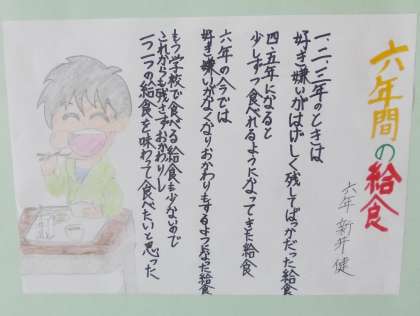 六年間の給食
六年 新井 健
一、二、三年のときは
好き嫌いがはげしく残してばっかだった給食
四、五年になると
少しずつ食べれるようになってきた給食
六年の今では
好き嫌いがなくなりおかわりもするようになった給食
もう学校で食べる給食も少ないので
これからも残さずおかわりし
一つ一つの給食を味わって食べたいと思った